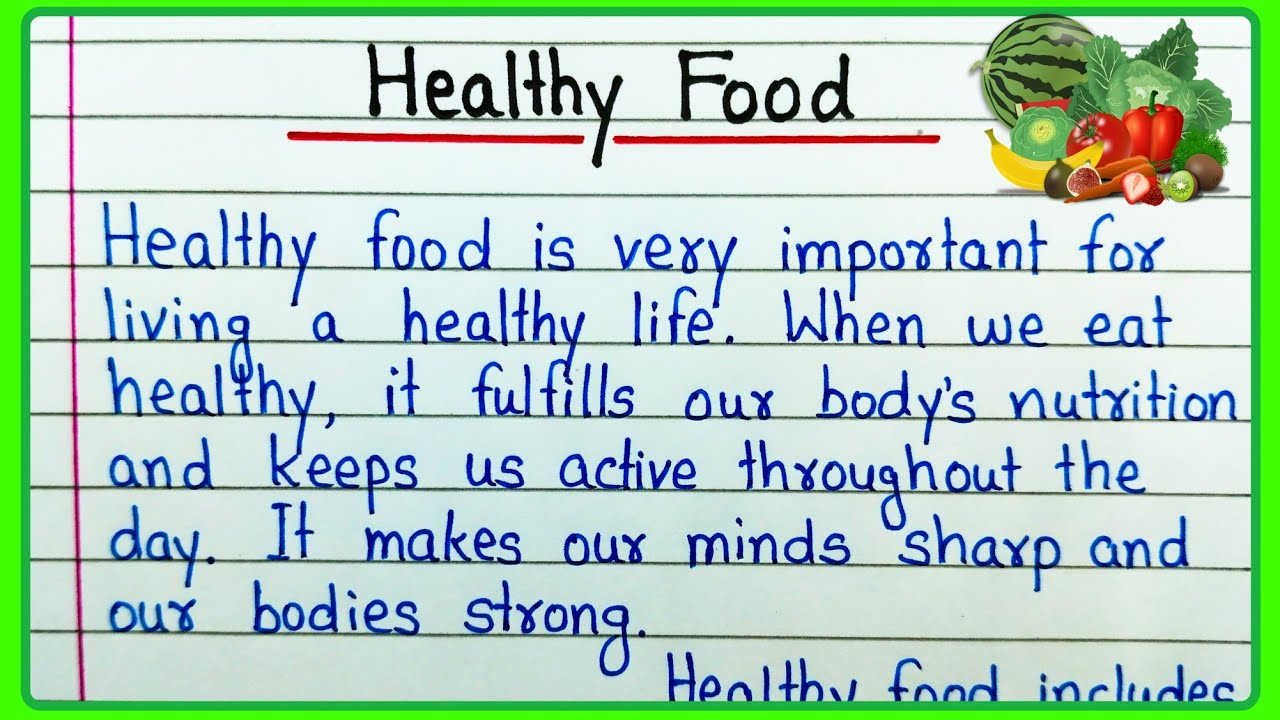 Healthy Food
Healthy food is very important for
living a healthy life. When we eat
healthy, it fulfills our body's nutrition
and keeps us active throughout the
day. It makes our minds sharp and
our bodies strong.
Healthy food includes